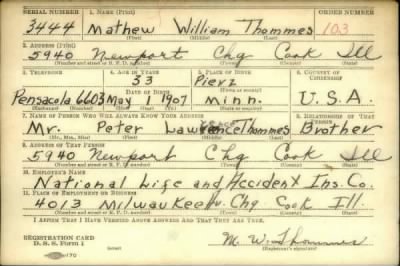 SERIAL NUMBER 1. NAME (Print) ORDER NUMBER
3444 Mathew William Thommes 103
(First) (Middle) (Last)
2. ADDRESS (Print)
5940 Newport Chg Cook Ill
(Number and street or R. F. D. number) (Town) (County) (State)
3. TELEPHONE 4. AGE IN YEARS 5. PLACE OF BIRTH 6. COUNTRY OF CITIZENSHIP
33 Pierz
DATE OF BIRTH
Pensacola 6603 May 1 1907 Minn. U.S.A.
(Exchange) (Number) (Mo.) (Day) (Yr.) (State or country)
7. NAME OF PERSON WHO WILL ALWAYS KNOW YOUR ADDRESS 8. RELATIONSHIP OF THAT PERSON
Mr. Peter Lawrence Thommes Brother
(Mr., Mrs., Miss) (First) (Middle) (Last)
9. ADDRESS OF THAT PERSON
5940 Newport Chg Cook Ill
(Number and street or R. F. D. number) (Town) (County) (State)
10. EMPLOYER'S NAME
National Life and Accident Ins. Co.
11. PLACE OF EMPLOYMENT OR BUSINESS
4013 Milwaukee Chg Cook Ill.
(Number and street or R. F. D. number) (Town) (County) (State)
I AFFIRM THAT I HAVE VERIFIED ABOVE ANSWERS AND THAT THEY ARE TRUE.
REGISTRATION CARD
D. S. S. Form 1 M. W. Thommes
(Registrant's signature)